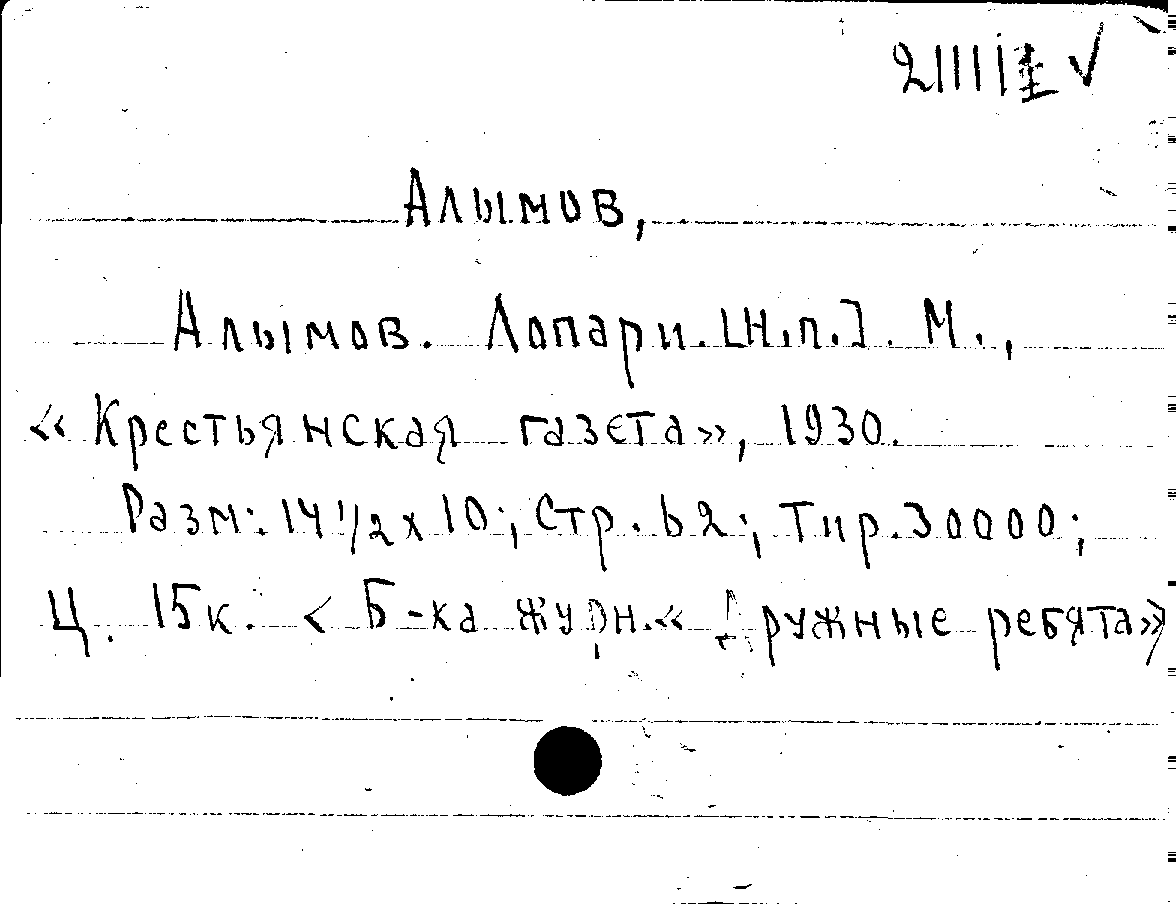 Алымов,
Алымов. Лопари. [Н.п.]. М.,
«Крестьянская газета», 1930.
Разм: 14 1/2 x 10; Стр. 62; Тир. 30000;
Ц. 15к. < Б-ка журн. «Дружные ребята»